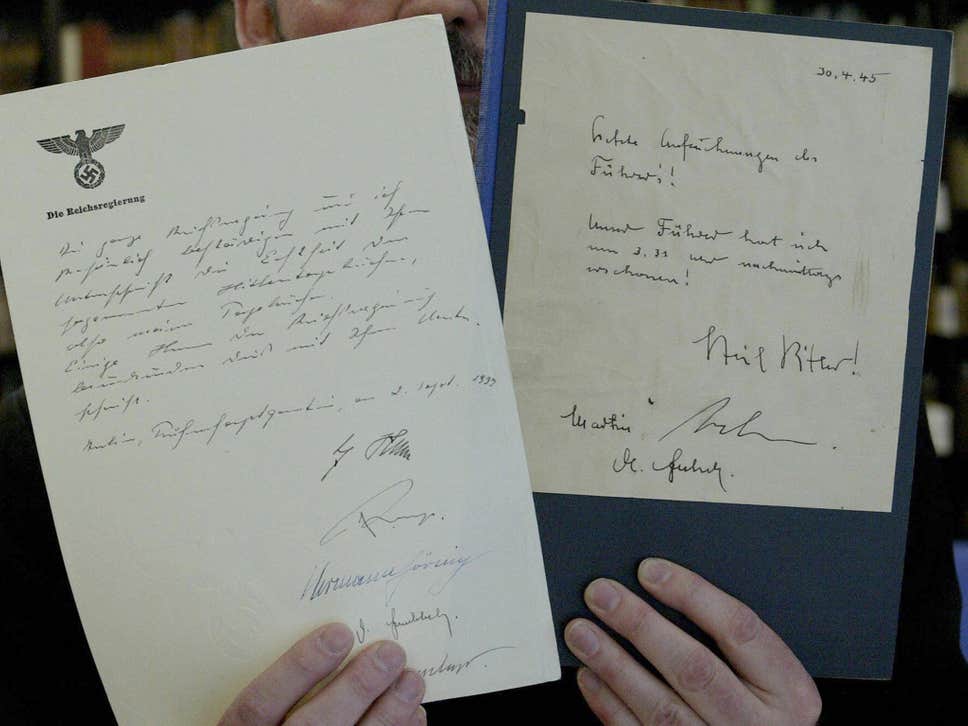 Die Reichsregierung
Die ganze Reichsregierung und ich
persönlich bestätigen mit Ihrer
Unterschrift die Echtheit der
sogenannten Hitlertagebücher,
also meiner Tagebücher.
Einige Herren der Reichsregierung
beurkunden dies mit Ihrer Unter-
schrift.
Berlin, Führerhauptquartier, am 2. Sept. 1939
Hermann Göring
30.4.45
Letzte Aufzeichnungen des
Führers!
Unser Führer hat sich
um 3.31 Uhr nachmittags
erschossen!
Heil Hitler!
Martin